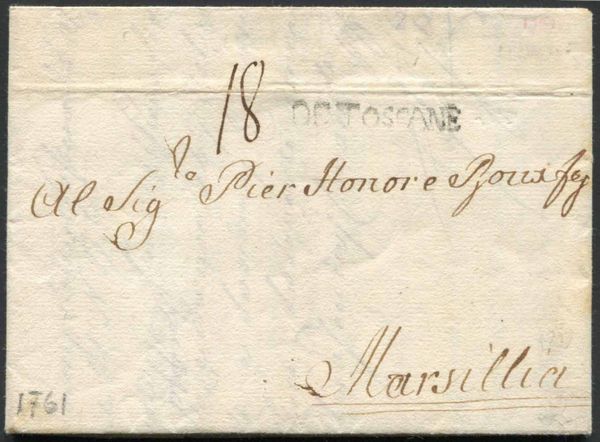 18
DE TOSCANE
Al Sig.ro Pier Honore Roux fq
Marsillia
1761